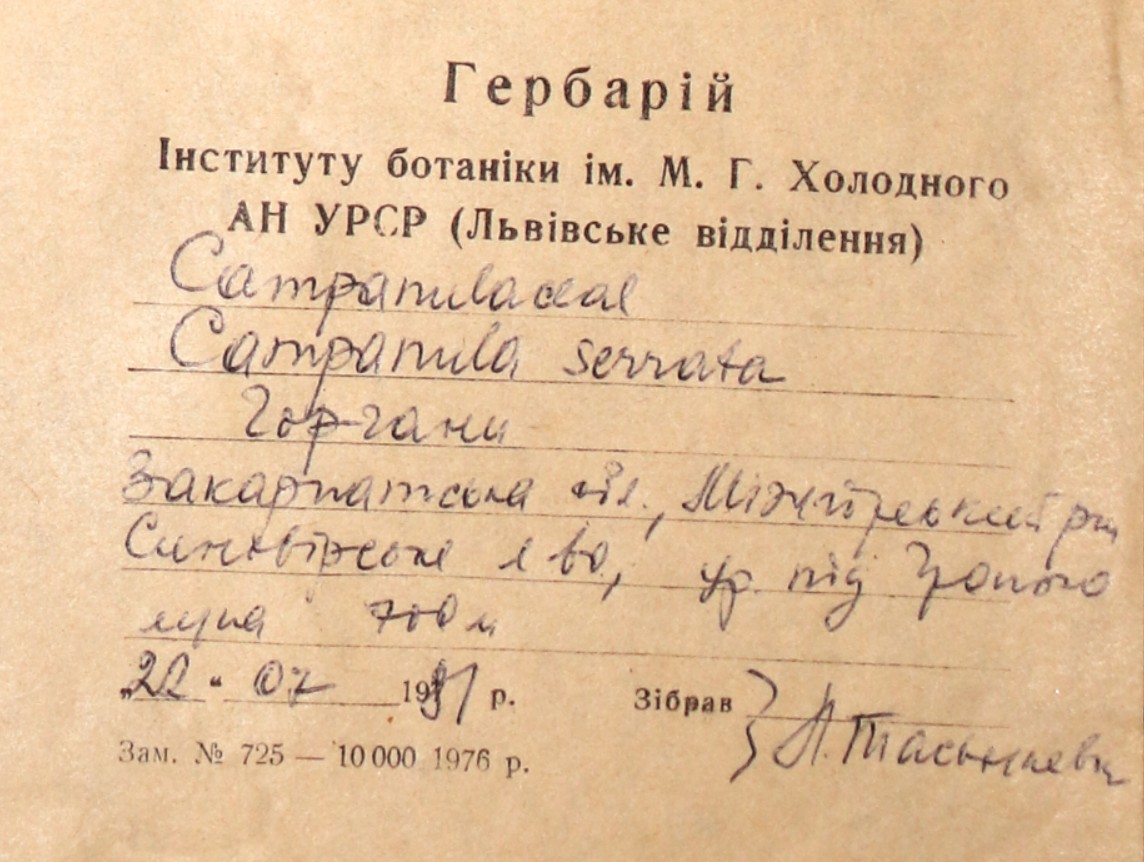 Гербарій
Інституту ботаніки ім. М. Г. Холодного
АН УРСР (Львівське відділення)
Campanulaceae
Campanula serrata
Горгани
Закарпатська обл., Міжгірський рн
Синевірське л-во, ур. під
700 м
„22“ 07 1981 р. Зібрав
Зам. № 725 — 10 000 1976 р.